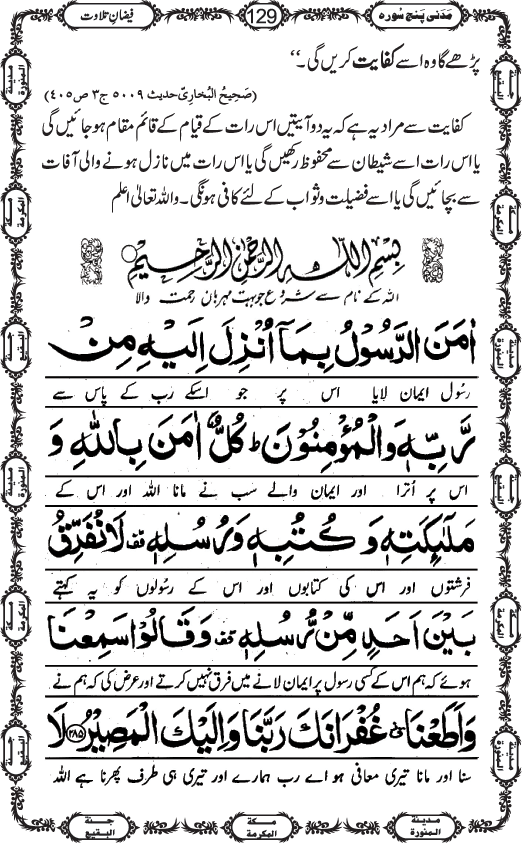 مَدَنی پَنج سُورہ
129
فیضانِ تلاوت
پڑھے گا وہ اسے کفایت کریں گی۔‘‘
(صَحِیحُ البُخارِیّ حدیث ۵۰۰۹ ج۳ ص۴۰۵)
کفایت سے مراد یہ ہے کہ یہ دو آیتیں اس رات کے قیام کے قائم مقام ہو جائیں گی
یا اس رات اسے شیطان سے محفوظ رکھیں گی یا اس رات میں نازل ہونے والی آفات
سے بچائیں گی یا اسے فضیلت و ثواب کے لئے کافی ہونگی۔ واللہ تعالیٰ اعلم
بِسْمِ اللّٰهِ الرَّحْمٰنِ الرَّحِیْمِ
اللہ کے نام سے شروع جو بہت مہربان رحمت والا
اٰمَنَ الرَّسُوْلُ بِمَاۤ اُنْزِلَ اِلَیْهِ مِنْ
رسول ایمان لایا اس پر جو اسکے رب کے پاس سے
رَّبِّهٖ وَالْمُؤْمِنُوْنَ ؕ كُلٌّ اٰمَنَ بِاللّٰهِ وَ
اس پر اُترا اور ایمان والے سب نے مانا اللہ اور اس کے
مَلٰٓىِٕكَتِهٖ وَ كُتُبِهٖ وَ رُسُلِهٖ قف لَا نُفَرِّقُ
فرشتوں اور اس کی کتابوں اور اس کے رسُولوں کو یہ کہتے
بَیْنَ اَحَدٍ مِّنْ رُّسُلِهٖ قف وَ قَالُوْا سَمِعْنَا
ہوئے کہ ہم اس کے کسی رسول پر ایمان لانے میں فرق نہیں کرتے اور عرض کی کہ ہم نے
وَ اَطَعْنَا ٘ۗ غُفْرَانَكَ رَبَّنَا وَ اِلَیْكَ الْمَصِیْرُ ﴿۲۸۵﴾ لَا
سنا اور مانا تیری معافی ہو اے رب ہمارے اور تیری ہی طرف پھرنا ہے اللہ
مدینة المنورة
جنة البقیع
مکة المکرمة
مدینة المنورة
جنة البقیع
مکة المکرمة
مدینة المنورة
جنة البقیع
مکة المکرمة
مدینة المنورة
جنة البقیع
مکة المکرمة
مدینة المنورة
جنة البقیع
مکة المکرمة
مدینة المنورة